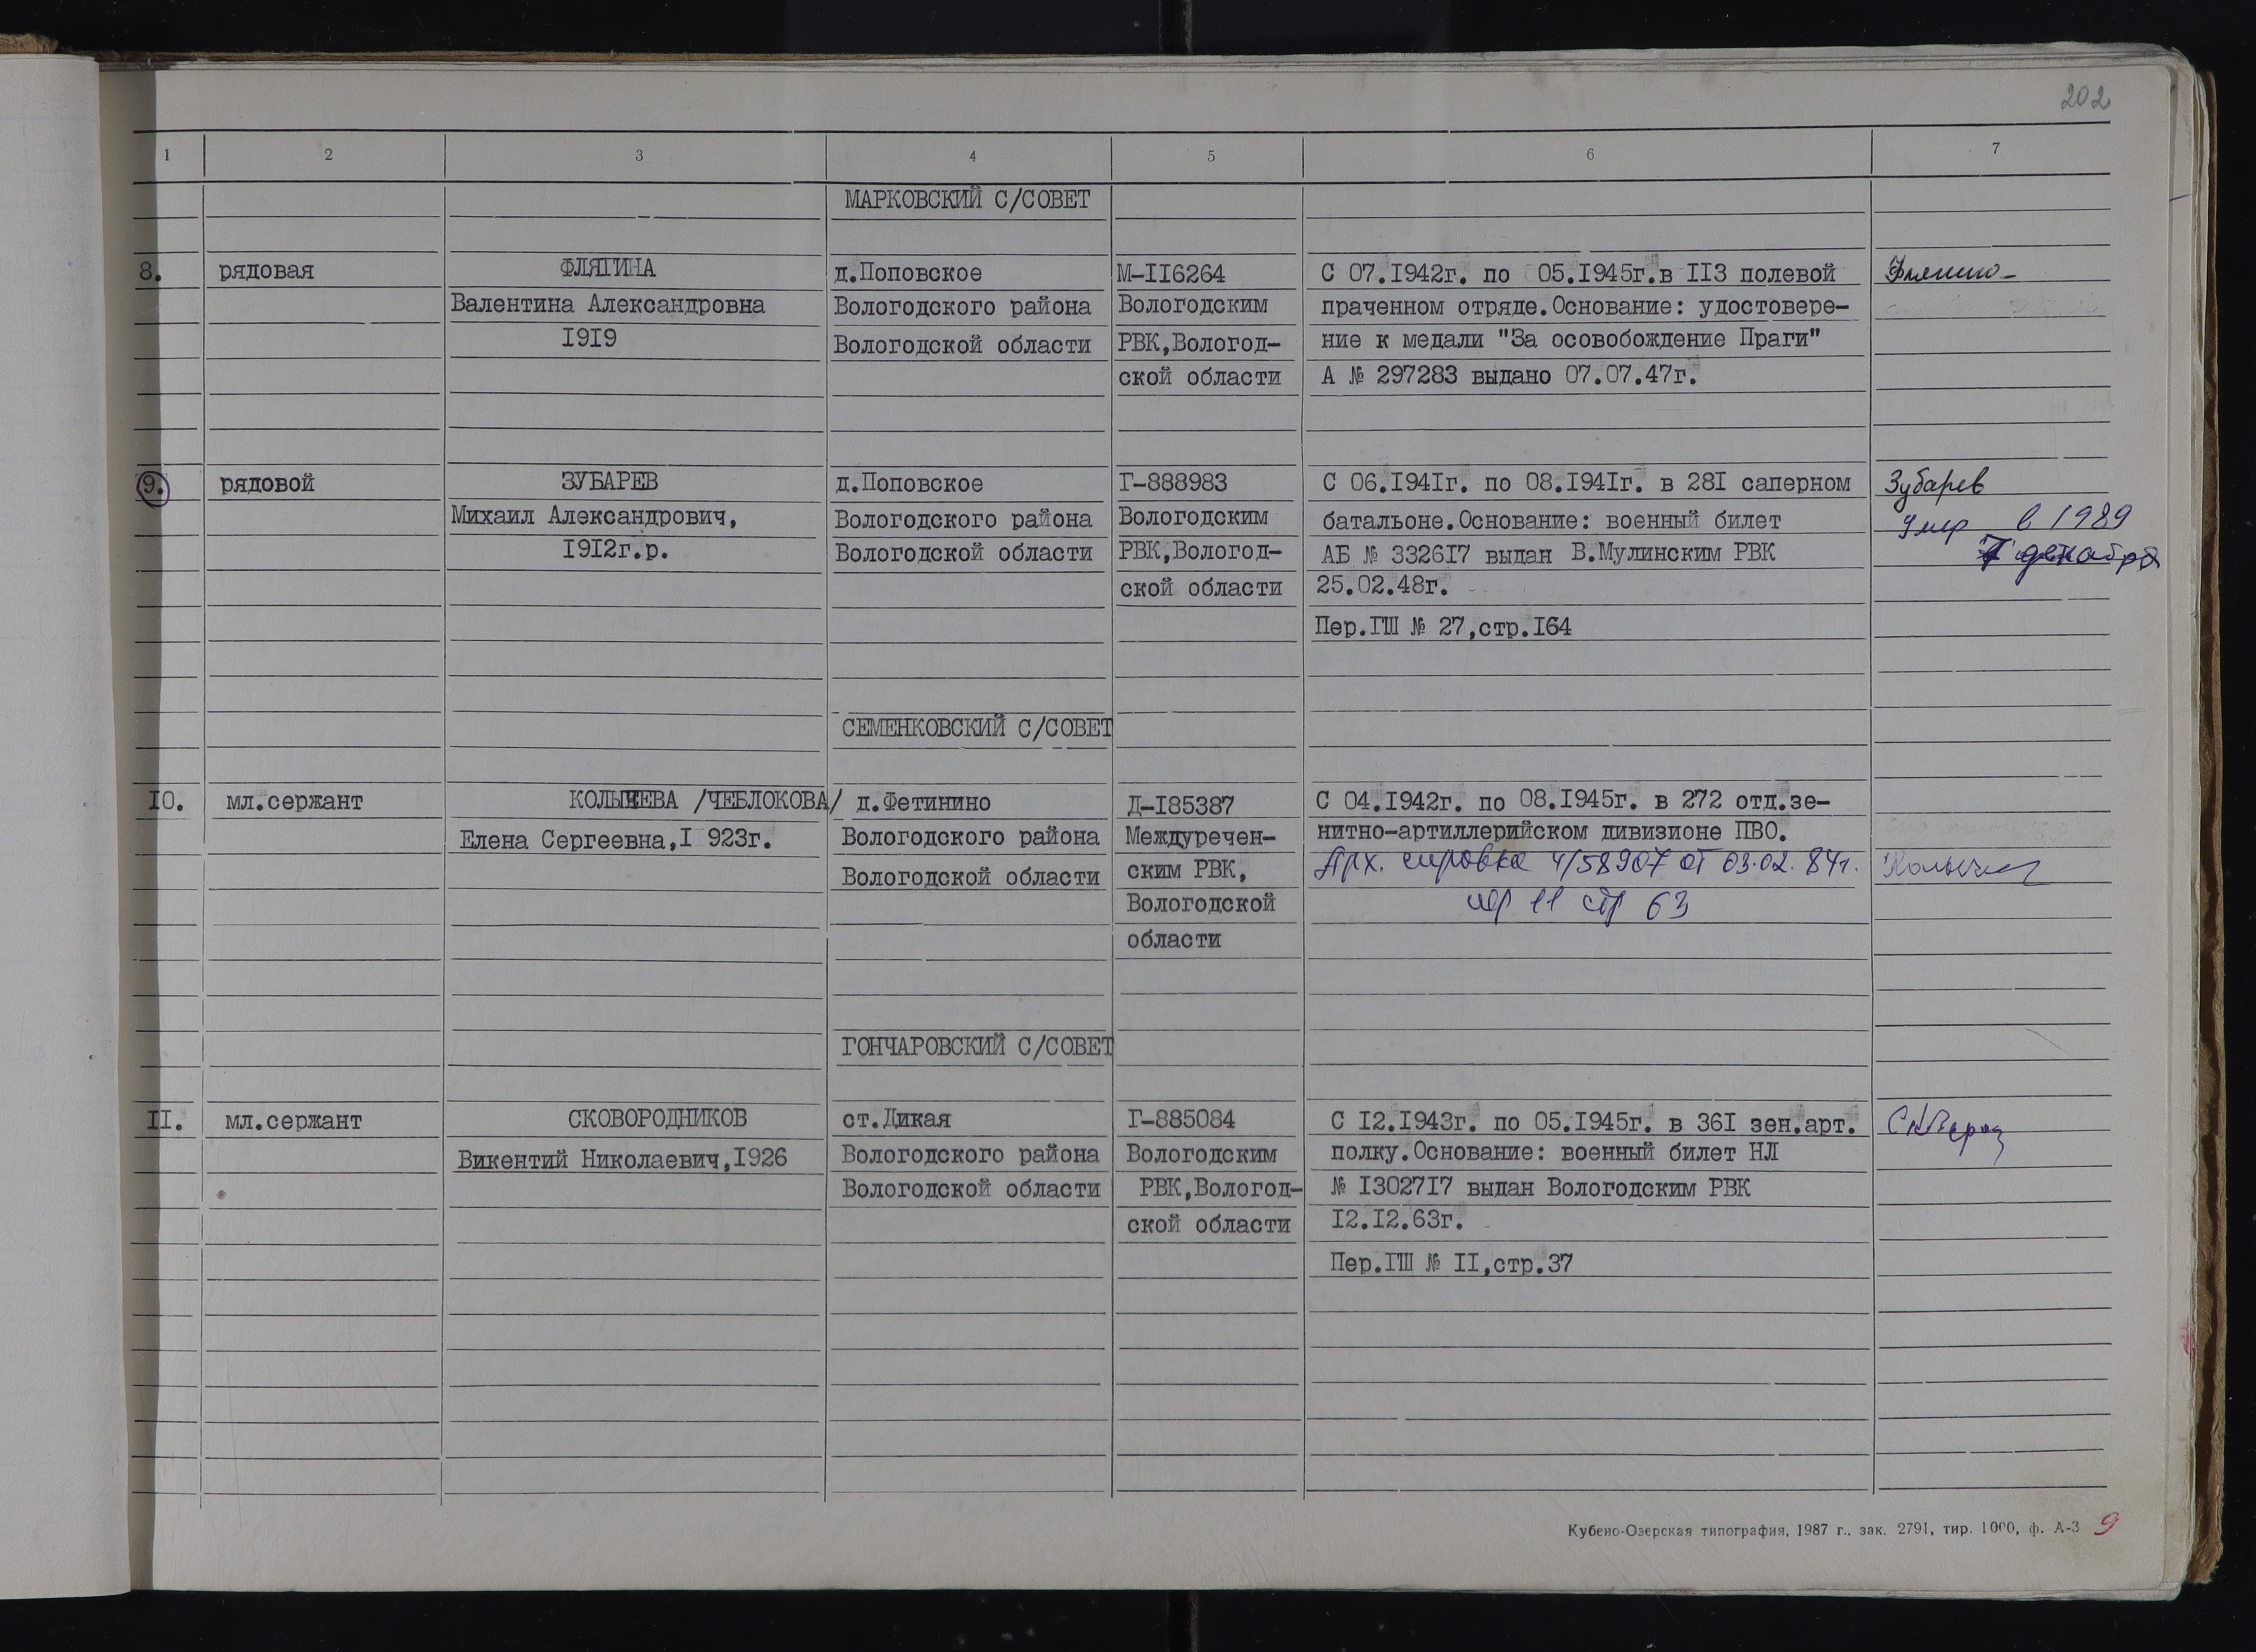 202
1 2 3 4 5 6 7
МАРКОВСКИЙ С/СОВЕТ
8. рядовая ФЛЯГИНА д.Поповское М-II6264 С 07.I942г. по 05.I945г.в II3 полевой
Валентина Александровна Вологодского района Вологодским праченном отряде.Основание: удостовере-
I9I9 Вологодской области РВК,Вологод- ние к медали "За осовобождение Праги"
ской области А № 297283 выдано 07.07.47г.
9. рядовой ЗУБАРЕВ д.Поповское Г-888983 С 06.I94Iг. по 08.I94Iг. в 28I саперном Зубарев
Михаил Александрович, Вологодского района Вологодским батальоне.Основание: военный билет умер в 1989
I9I2г.р. Вологодской области РВК,Вологод- АБ № 3326I7 выдан В.Мулинским РВК 7 декабря
ской области 25.02.48г.
Пер.ГШ № 27,стр.I64
СЕМЕНКОВСКИЙ С/СОВЕТ
IO. мл.сержант КОЛЫЧЕВА /ЧЕБЛОКОВА/ д.Фетинино Д-I85387 С 04.I942г. по 08.I945г. в 272 отд.зе-
Елена Сергеевна,I 923г. Вологодского района Междуречен- нитно-артиллерийском дивизионе ПВО.
Вологодской области ским РВК, Арх. справка 4/58907 от 03.02.84г.
Вологодской пер 11 стр 63
области
ГОНЧАРОВСКИЙ С/СОВЕТ
II. мл.сержант СКОВОРОДНИКОВ ст.Дикая Г-885084 С I2.I943г. по 05.I945г. в 36I зен.арт.
Викентий Николаевич,I926 Вологодского района Вологодским полку.Основание: военный билет НЛ
Вологодской области РВК,Вологод- № I3027I7 выдан Вологодским РВК
ской области I2.I2.63г.
Пер.ГШ № II,стр.37
Кубено-Озерская типография, 1987 г., зак. 2791, тир. 1000, ф. А-3 9